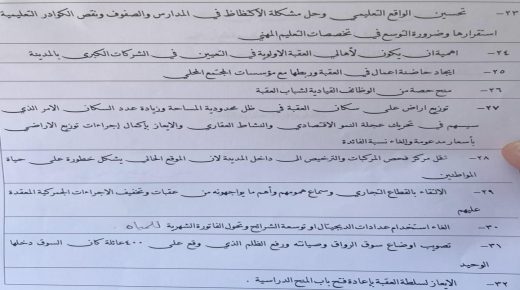 ٢٣- تحسين الواقع التعليمي وحل مشكلة الاكتظاظ في المدارس والصفوف ونقص الكوادر التعليمية
استقرارها وضرورة التوسع في تخصصات التعليم المهني
٢٤- اهمية ان يكون لأهالي العقبة الاولوية في التعيين في الشركات الكبرى بالمدينة
٢٥- ايجاد حاضنة اعمال في العقبة وربطها مع مؤسسات المجتمع المحلي
٢٦- منح حصة من الوظائف القيادية لشباب العقبة
٢٧- توزيع اراض على سكان العقبة في ظل محدودية المساحة وزيادة عدد السكان الامر الذي
سيسهم في تحريك عجلة النمو الاقتصادي والنشاط العقاري والايعاز بإكمال إجراءات توزيع الاراضي
بأسعار مدعومة والغاء نسبة الفائدة
٢٨- نقل مركز فحص المركبات والترخيص الى داخل المدينة لان الموقع الحالي يشكل خطورة على حياة
المواطنين
٢٩- الالتقاء بالقطاع التجاري وسماع همومهم وأهم ما يواجهونه من عقبات وتخفيف الاجراءات الجمركية المعقدة
عليهم
٣٠- الغاء استخدام عدادات الديجيتال او توسعة الشرائح وتحول الفاتورة الشهرية للمياه
٣١- تصويب اوضاع سوق الرواق وصيانته ورفع الظلم الذي وقع على ٤٠٠ عائلة كان السوق دخلها
الوحيد
٣٢- الايعاز لسلطة العقبة بإعادة فتح باب المنح الدراسية .